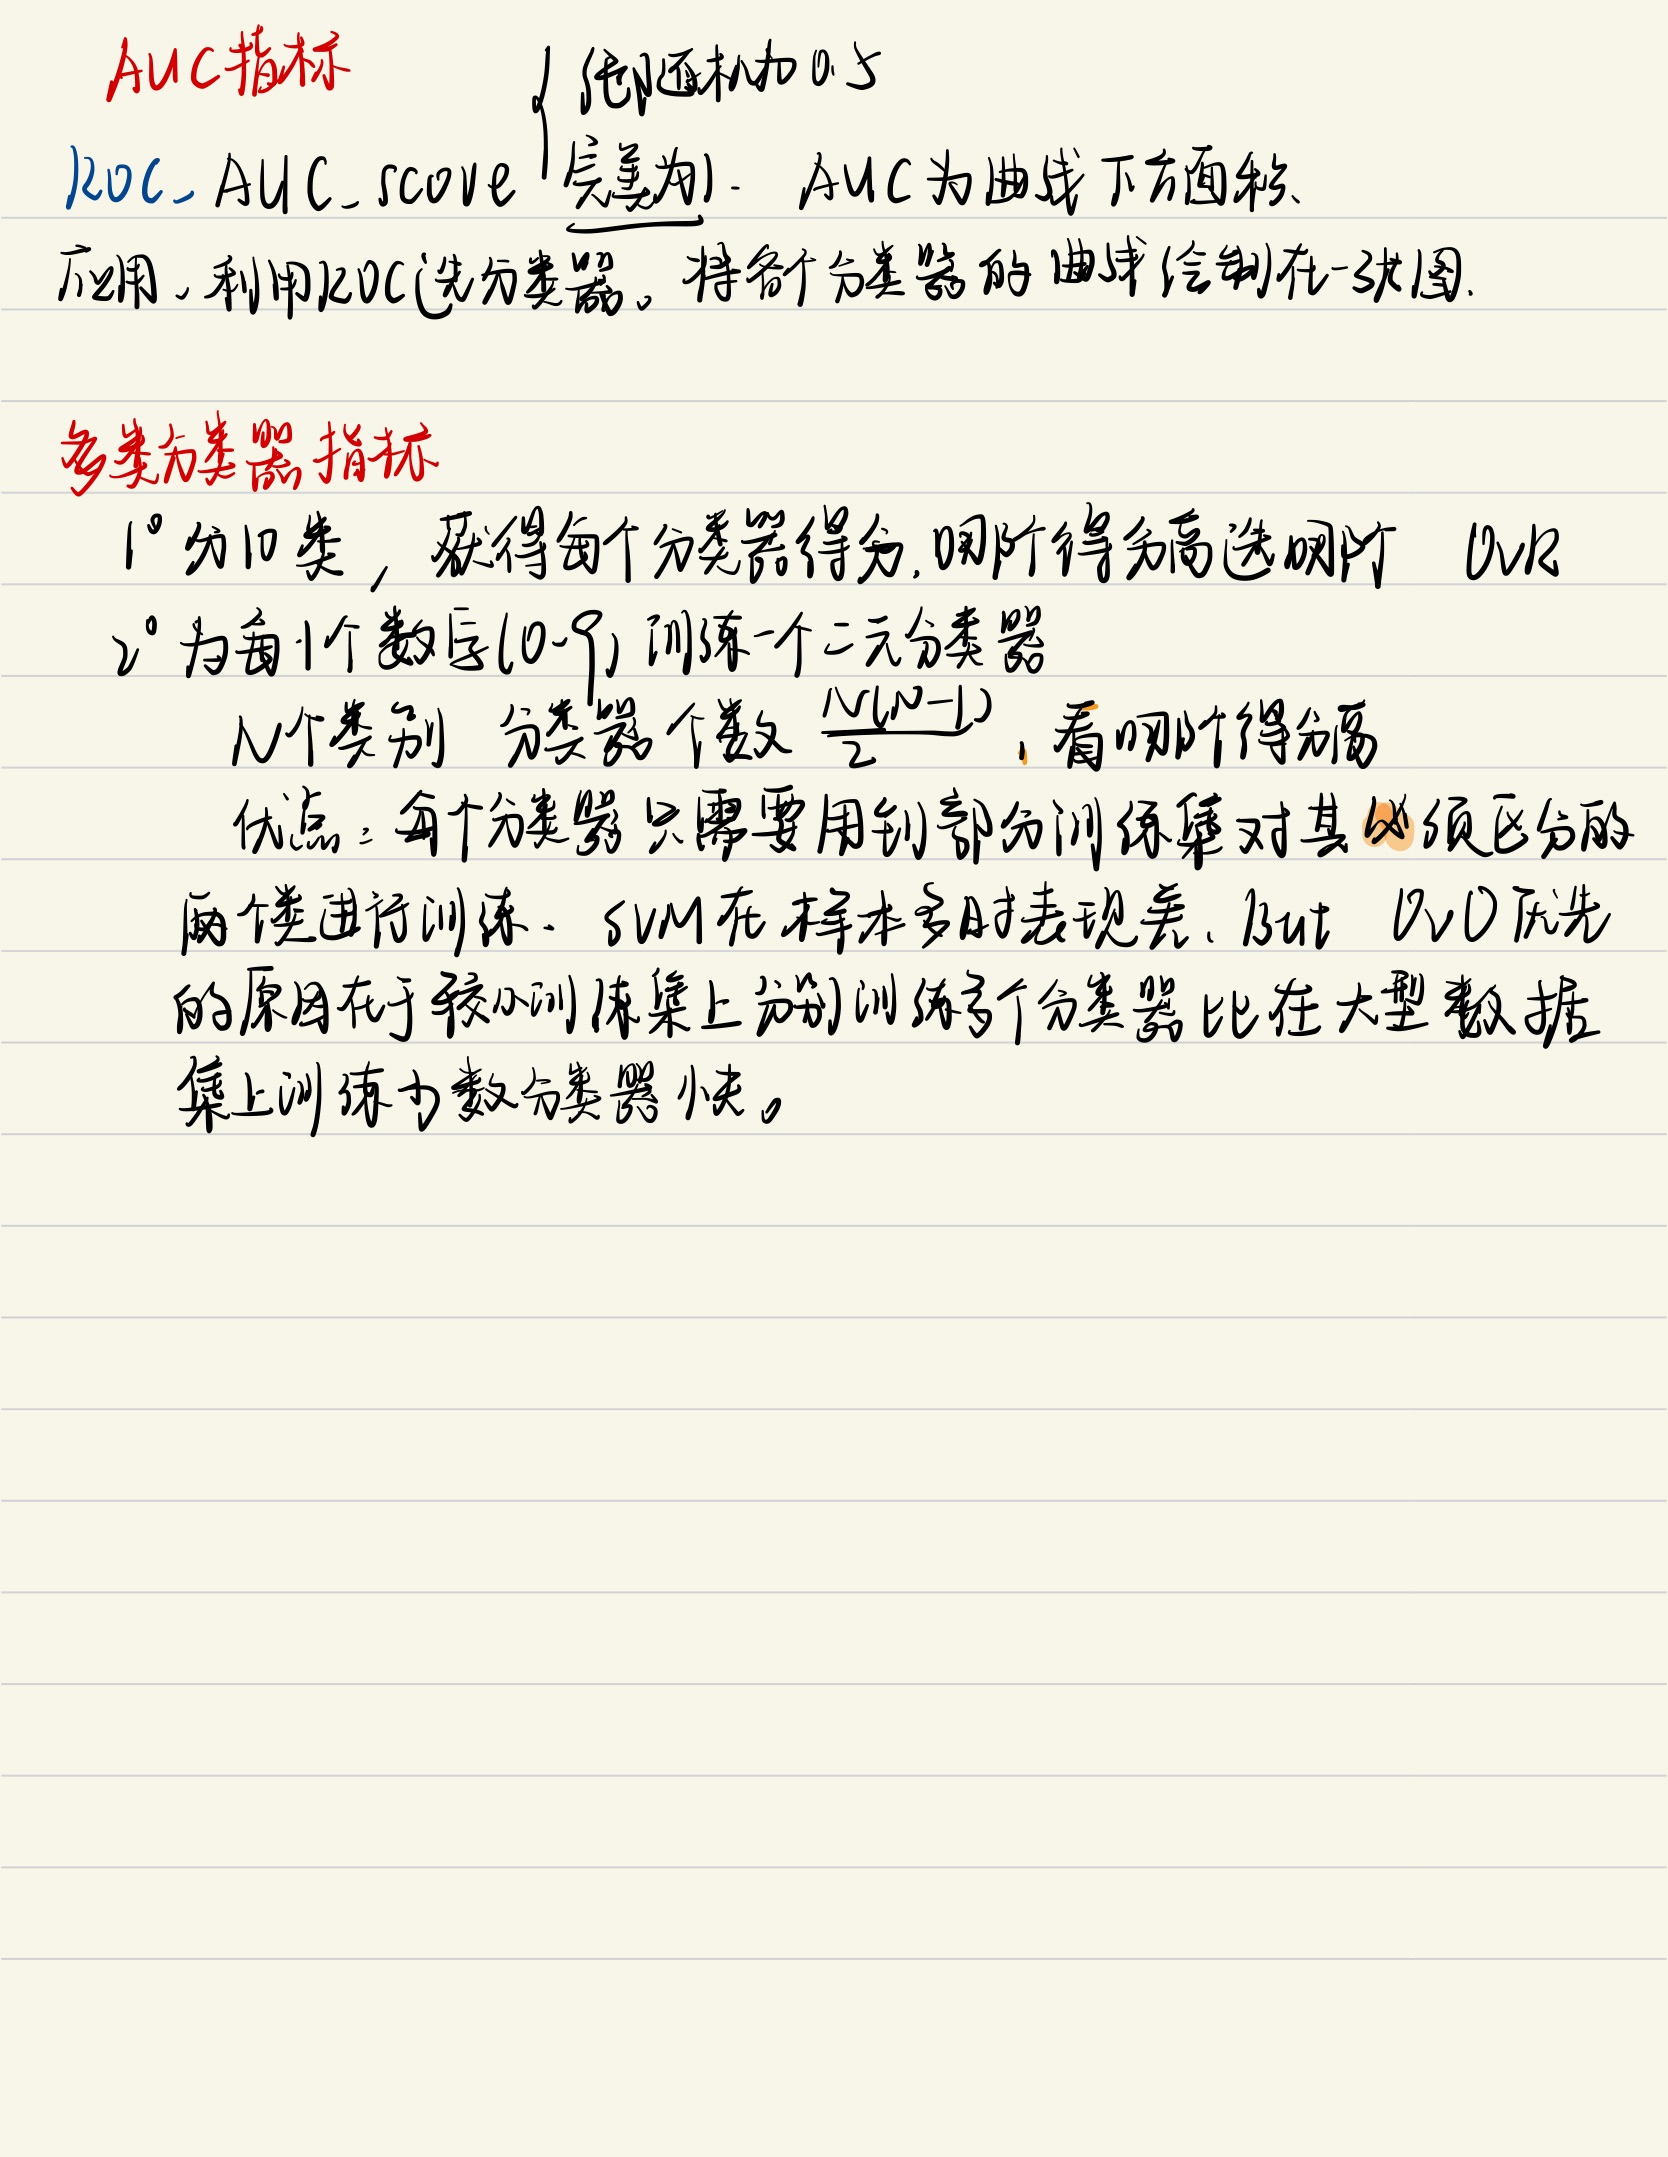 AUC指标
纯随机为0.5
ROC_AUC_score 完美为1. AUC为曲线下方面积、
应用、利用ROC选分类器。将各个分类器的曲线绘制在一张图.
多类分类器指标
1° 分10类, 获得每个分类器得分,哪个得分高选哪个 OVR
2° 为每1个数字(0-9)训练一个二元分类器
N个类别 分类器个数 N(N-1)/2 , 看哪个得分高
优点: 每个分类器只需要用到部分训练集对其必须区分的
两个类进行训练. SVM在样本多时表现差, But OVO优先
的原因在于较小训练集上分别训练多个分类器比在大型数据
集上训练少数分类器快。